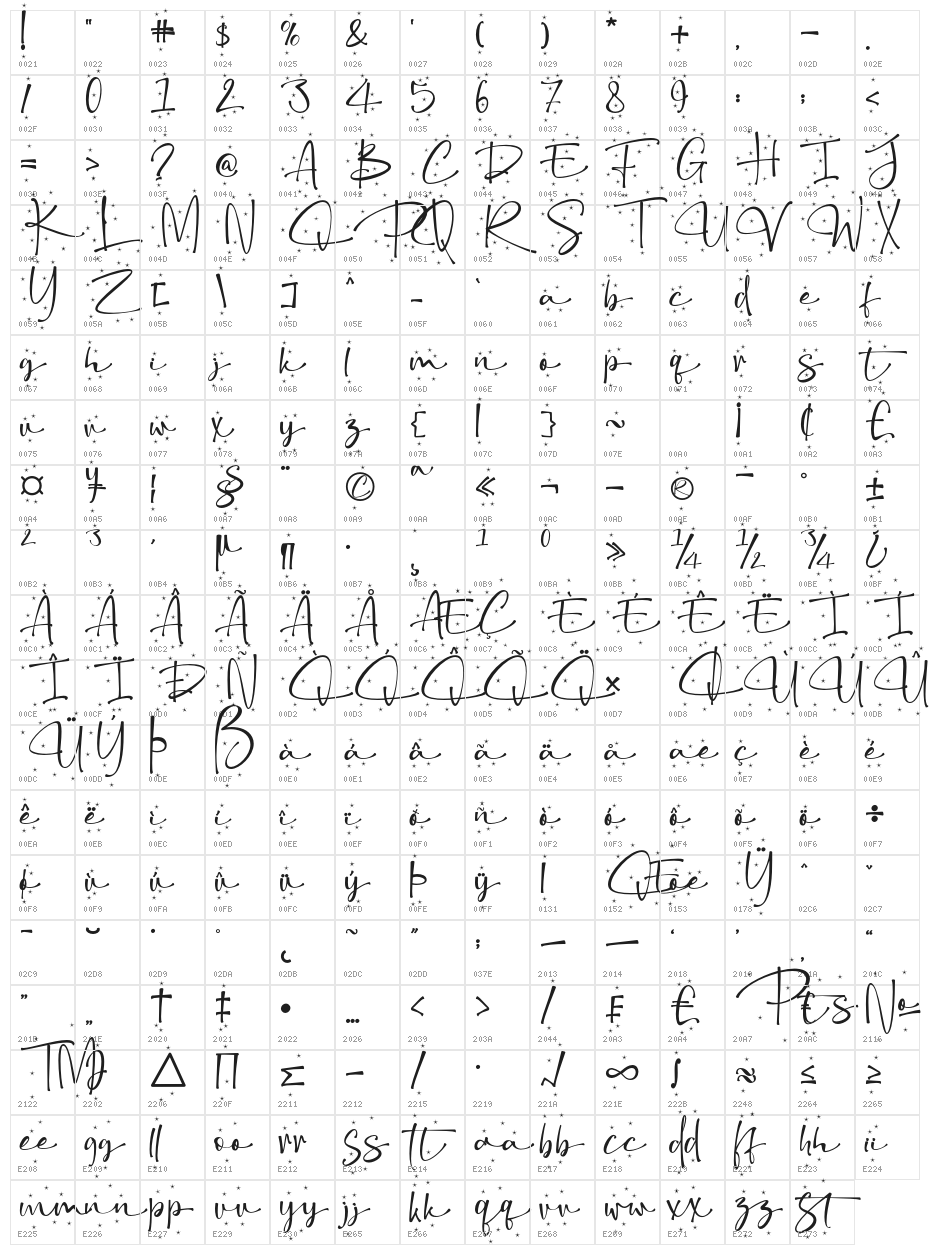 ! " # $ % & ' ( ) * + , - .
0021 0022 0023 0024 0025 0026 0027 0028 0029 002A 002B 002C 002D 002E
/ 0 1 2 3 4 5 6 7 8 9 : ; <
002F 0030 0031 0032 0033 0034 0035 0036 0037 0038 0039 003A 003B 003C
= > ? @ A B C D E F G H I J
003D 003E 003F 0040 0041 0042 0043 0044 0045 0046 0047 0048 0049 004A
K L M N O P Q R S T U V W X
004B 004C 004D 004E 004F 0050 0051 0052 0053 0054 0055 0056 0057 0058
Y Z [ \ ] ^ _ ` a b c d e f
0059 005A 005B 005C 005D 005E 005F 0060 0061 0062 0063 0064 0065 0066
g h i j k l m n o p q r s t
0067 0068 0069 006A 006B 006C 006D 006E 006F 0070 0071 0072 0073 0074
u v w x y z { | } ~ ¡ ¢ £
0075 0076 0077 0078 0079 007A 007B 007C 007D 007E 00A0 00A1 00A2 00A3
¤ ¥ ¦ § ¨ © ª « ¬ - ® ¯ ° ±
00A4 00A5 00A6 00A7 00A8 00A9 00AA 00AB 00AC 00AD 00AE 00AF 00B0 00B1
² ³ ´ µ ¶ · ¸ ¹ º » ¼ ½ ¾ ¿
00B2 00B3 00B4 00B5 00B6 00B7 00B8 00B9 00BA 00BB 00BC 00BD 00BE 00BF
À Á Â Ã Ä Å Æ Ç È É Ê Ë Ì Í
00C0 00C1 00C2 00C3 00C4 00C5 00C6 00C7 00C8 00C9 00CA 00CB 00CC 00CD
Î Ï Ð Ñ Ò Ó Ô Õ Ö × Ø Ù Ú Û
00CE 00CF 00D0 00D1 00D2 00D3 00D4 00D5 00D6 00D7 00D8 00D9 00DA 00DB
Ü Ý Þ ß à á â ã ä å æ ç è é
00DC 00DD 00DE 00DF 00E0 00E1 00E2 00E3 00E4 00E5 00E6 00E7 00E8 00E9
ê ë ì í î ï ð ñ ò ó ô õ ö ÷
00EA 00EB 00EC 00ED 00EE 00EF 00F0 00F1 00F2 00F3 00F4 00F5 00F6 00F7
ø ù ú û ü ý þ ÿ ı Œ œ Ÿ ˆ ˇ
00F8 00F9 00FA 00FB 00FC 00FD 00FE 00FF 0131 0152 0153 0178 02C6 02C7
ˉ ˘ ˙ ˚ ˛ ˜ ˝ ; – — ‘ ’ ‚ “
02C9 02D8 02D9 02DA 02DB 02DC 02DD 037E 2013 2014 2018 2019 201A 201C
” „ † ‡ • … ‹ › ⁄ ₣ ₤ ₧ € №
201D 201E 2020 2021 2022 2026 2039 203A 2044 20A3 20A4 20A7 20AC 2116
™ ∂ ∆ ∏ ∑ − ∕ ∙ √ ∞ ∫ ≈ ≤ ≥
2122 2202 2206 220F 2211 2212 2215 2219 221A 221E 222B 2248 2264 2265
ee gg ll oo rr ss tt aa bb cc dd ff hh ii
E208 E209 E210 E211 E212 E213 E214 E216 E217 E218 E219 E221 E223 E224
mm nn pp uu yy jj kk qq vv ww xx zz st
E225 E226 E227 E229 E230 E265 E266 E267 E268 E269 E271 E272 E273